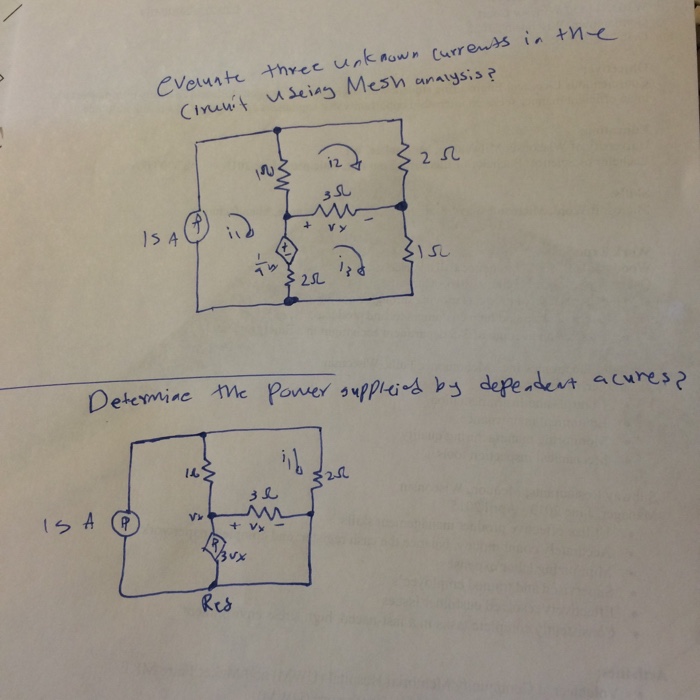 evaluate three unknown currents in the
Circuit useing Mesh analysis?
1Ω
i2
2 Ω
3Ω
15 A
i1
+ Vx -
+
-
i3
1Ω
2Ω
Determine the power suppleied by dependent acures?
i1
2Ω
3Ω
15 A
Vx
+ Vx -
3Vx
Ref